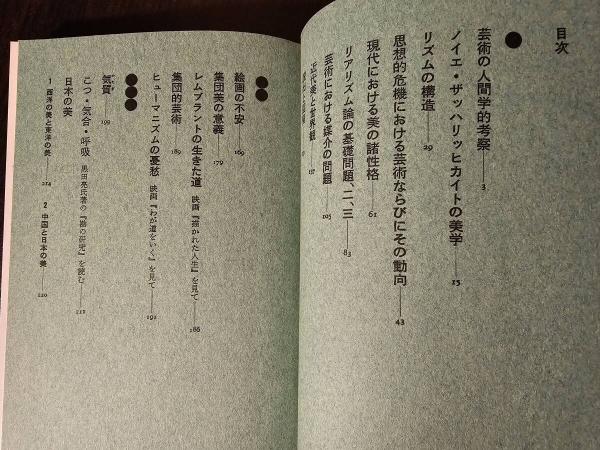 目次
●
芸術の人間学的考察——3
ノイエ・ザッハリッヒカイトの美学——15
リズムの構造——29
思想的危機における芸術ならびにその動向——43
現代における美の諸性格——61
リアリズム論の基礎問題、二、三——83
芸術における媒介の問題——105
近代美と世界観——137
●●
絵画の不安——169
集団美の意義——179
レムブラントの生きた道 映画『描かれた人生』を見て——186
集団的芸術——189
ヒューマニズムの憂愁 映画『わが道をいく』を見て——191
●●●
気質——199
こつ・気合・呼吸 黒田亮氏著の『勘の研究』を読む——211
日本の美
1 西洋の美と東洋の美——214
2 中国と日本の美——220